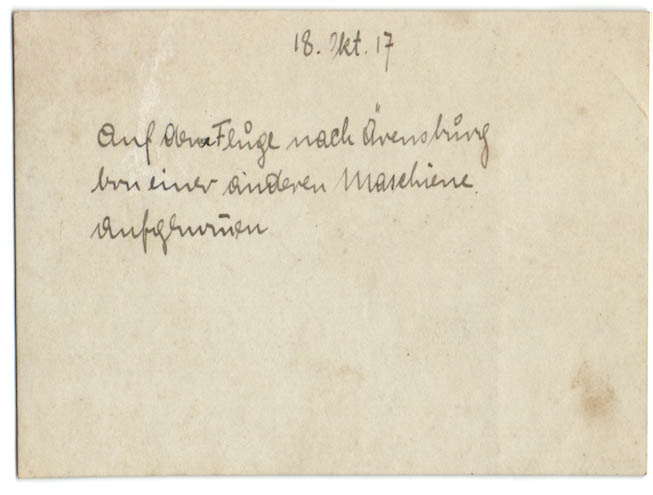 18. Okt. 17
Auf dem Fluge nach Ärensburg
von einer anderen Maschiene
aufgenom̅en